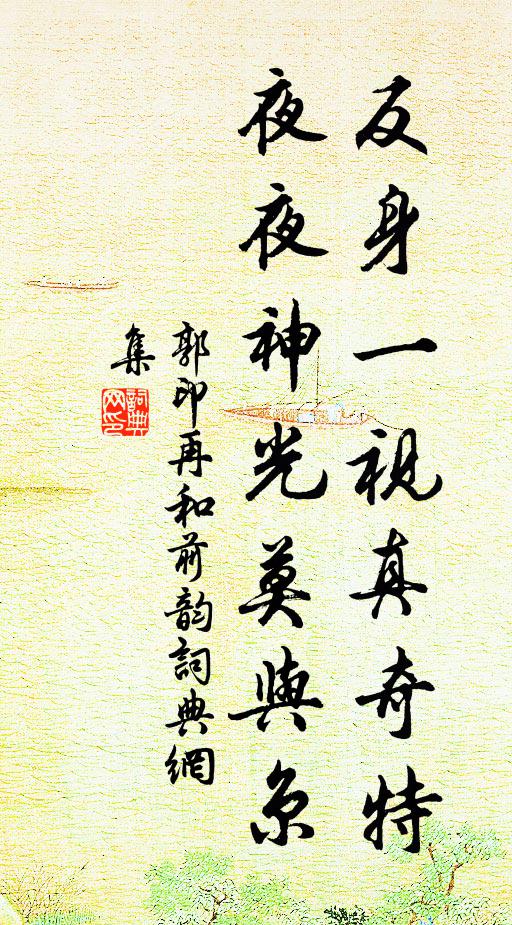 反身一視真奇特
夜夜神光莫與京
郭印再和前韵詞典網
集
詞典
网印